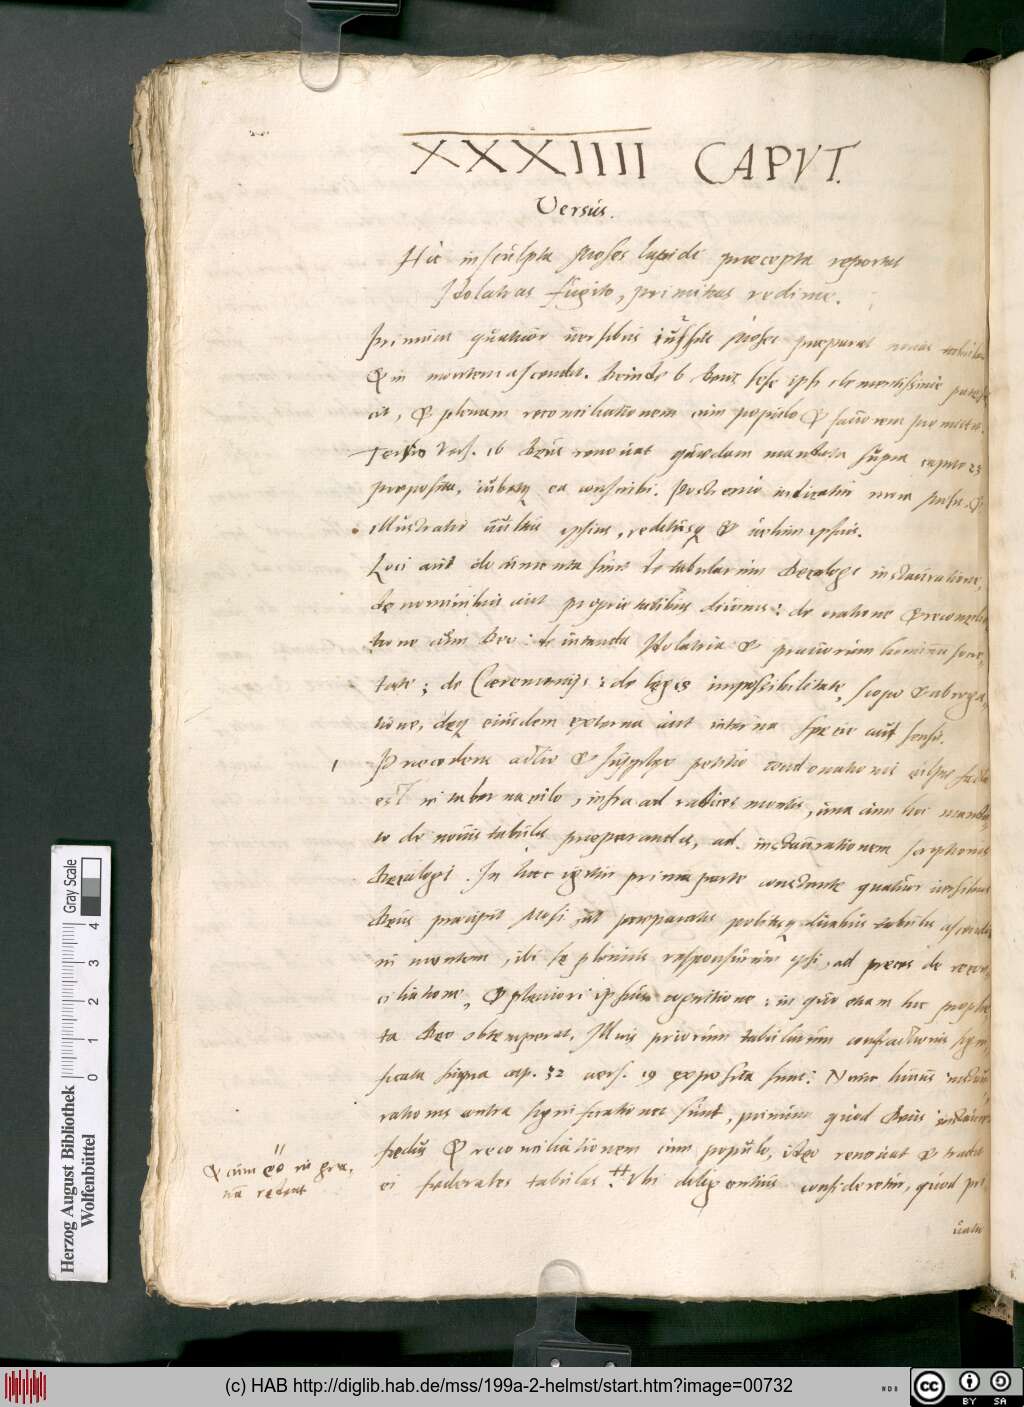 XXXIIII CAPVT.
Versus.
Hic insculpta Moses lapide præcepta reportat
Idolatras fugito, primitias redime.
Primum quatuor versibus iussu Mosen præparat novas tabulas
& in montem ascendit. Deinde 6 Deus sese ipsi clementissime patefa
cit, & plenam reconciliationem cum populo & favorem promittit.
Tertio vers. 16 Deus renovat quædam mandata supra capite 23
proposita, iubetq ea conscribi. Postremo indicatur mora Mosis &
illustratio vultus ipsius, reditusq & velum ipsius.
Loci aut documenta sunt de tabularum Decalogi instauratione,
de nominibus aut proprietatibus divinis: de oratione & reconcilia
tione cum Deo: de vitanda Idolatria & pravorum hominum socie,
tate; de Cæremonijs: de legis impossibilitate, scopo & abroga,
tione, deq eiusdem externa aut interna specie aut sensu.
1
Præcedens actio & supplex petitio condonationis culpæ facta
est in tabernaculo, infra ad radices montis, una cum hoc manda,
to de novis tabulis præparandis, ad instaurationem scriptionis
Decalogi. In hac igitur prima parte constante quatuor versibus
Deus præcipit Mosi ut præparatis politisq duabus tabulis ascendat
in montem, ibi se plenius responsurum ipsi, ad preces de recon,
ciliatione, & pleniori ipsius cognitione: in quo etiam hic prophe
ta Deo obtemperat. Illius priorum tabularum confractionis signi,
ficata supra cap. 32 vers. 19 exposita sunt: Nunc huius instau
rationis contra significationes sunt, primum quod Deus instauret
fœdus & reconciliationem cum populo, ideo renovat & tradit
ei fœderales tabulas. Ubi diligentius consideretur, quod pri
& cum eo in gra,
tiam redeat
Herzog August Bibliothek
Wolfenbüttel
0 1 2 3 4
Gray Scale
(c) HAB http://diglib.hab.de/mss/199a-2-helmst/start.htm?image=00732
cc BY SA